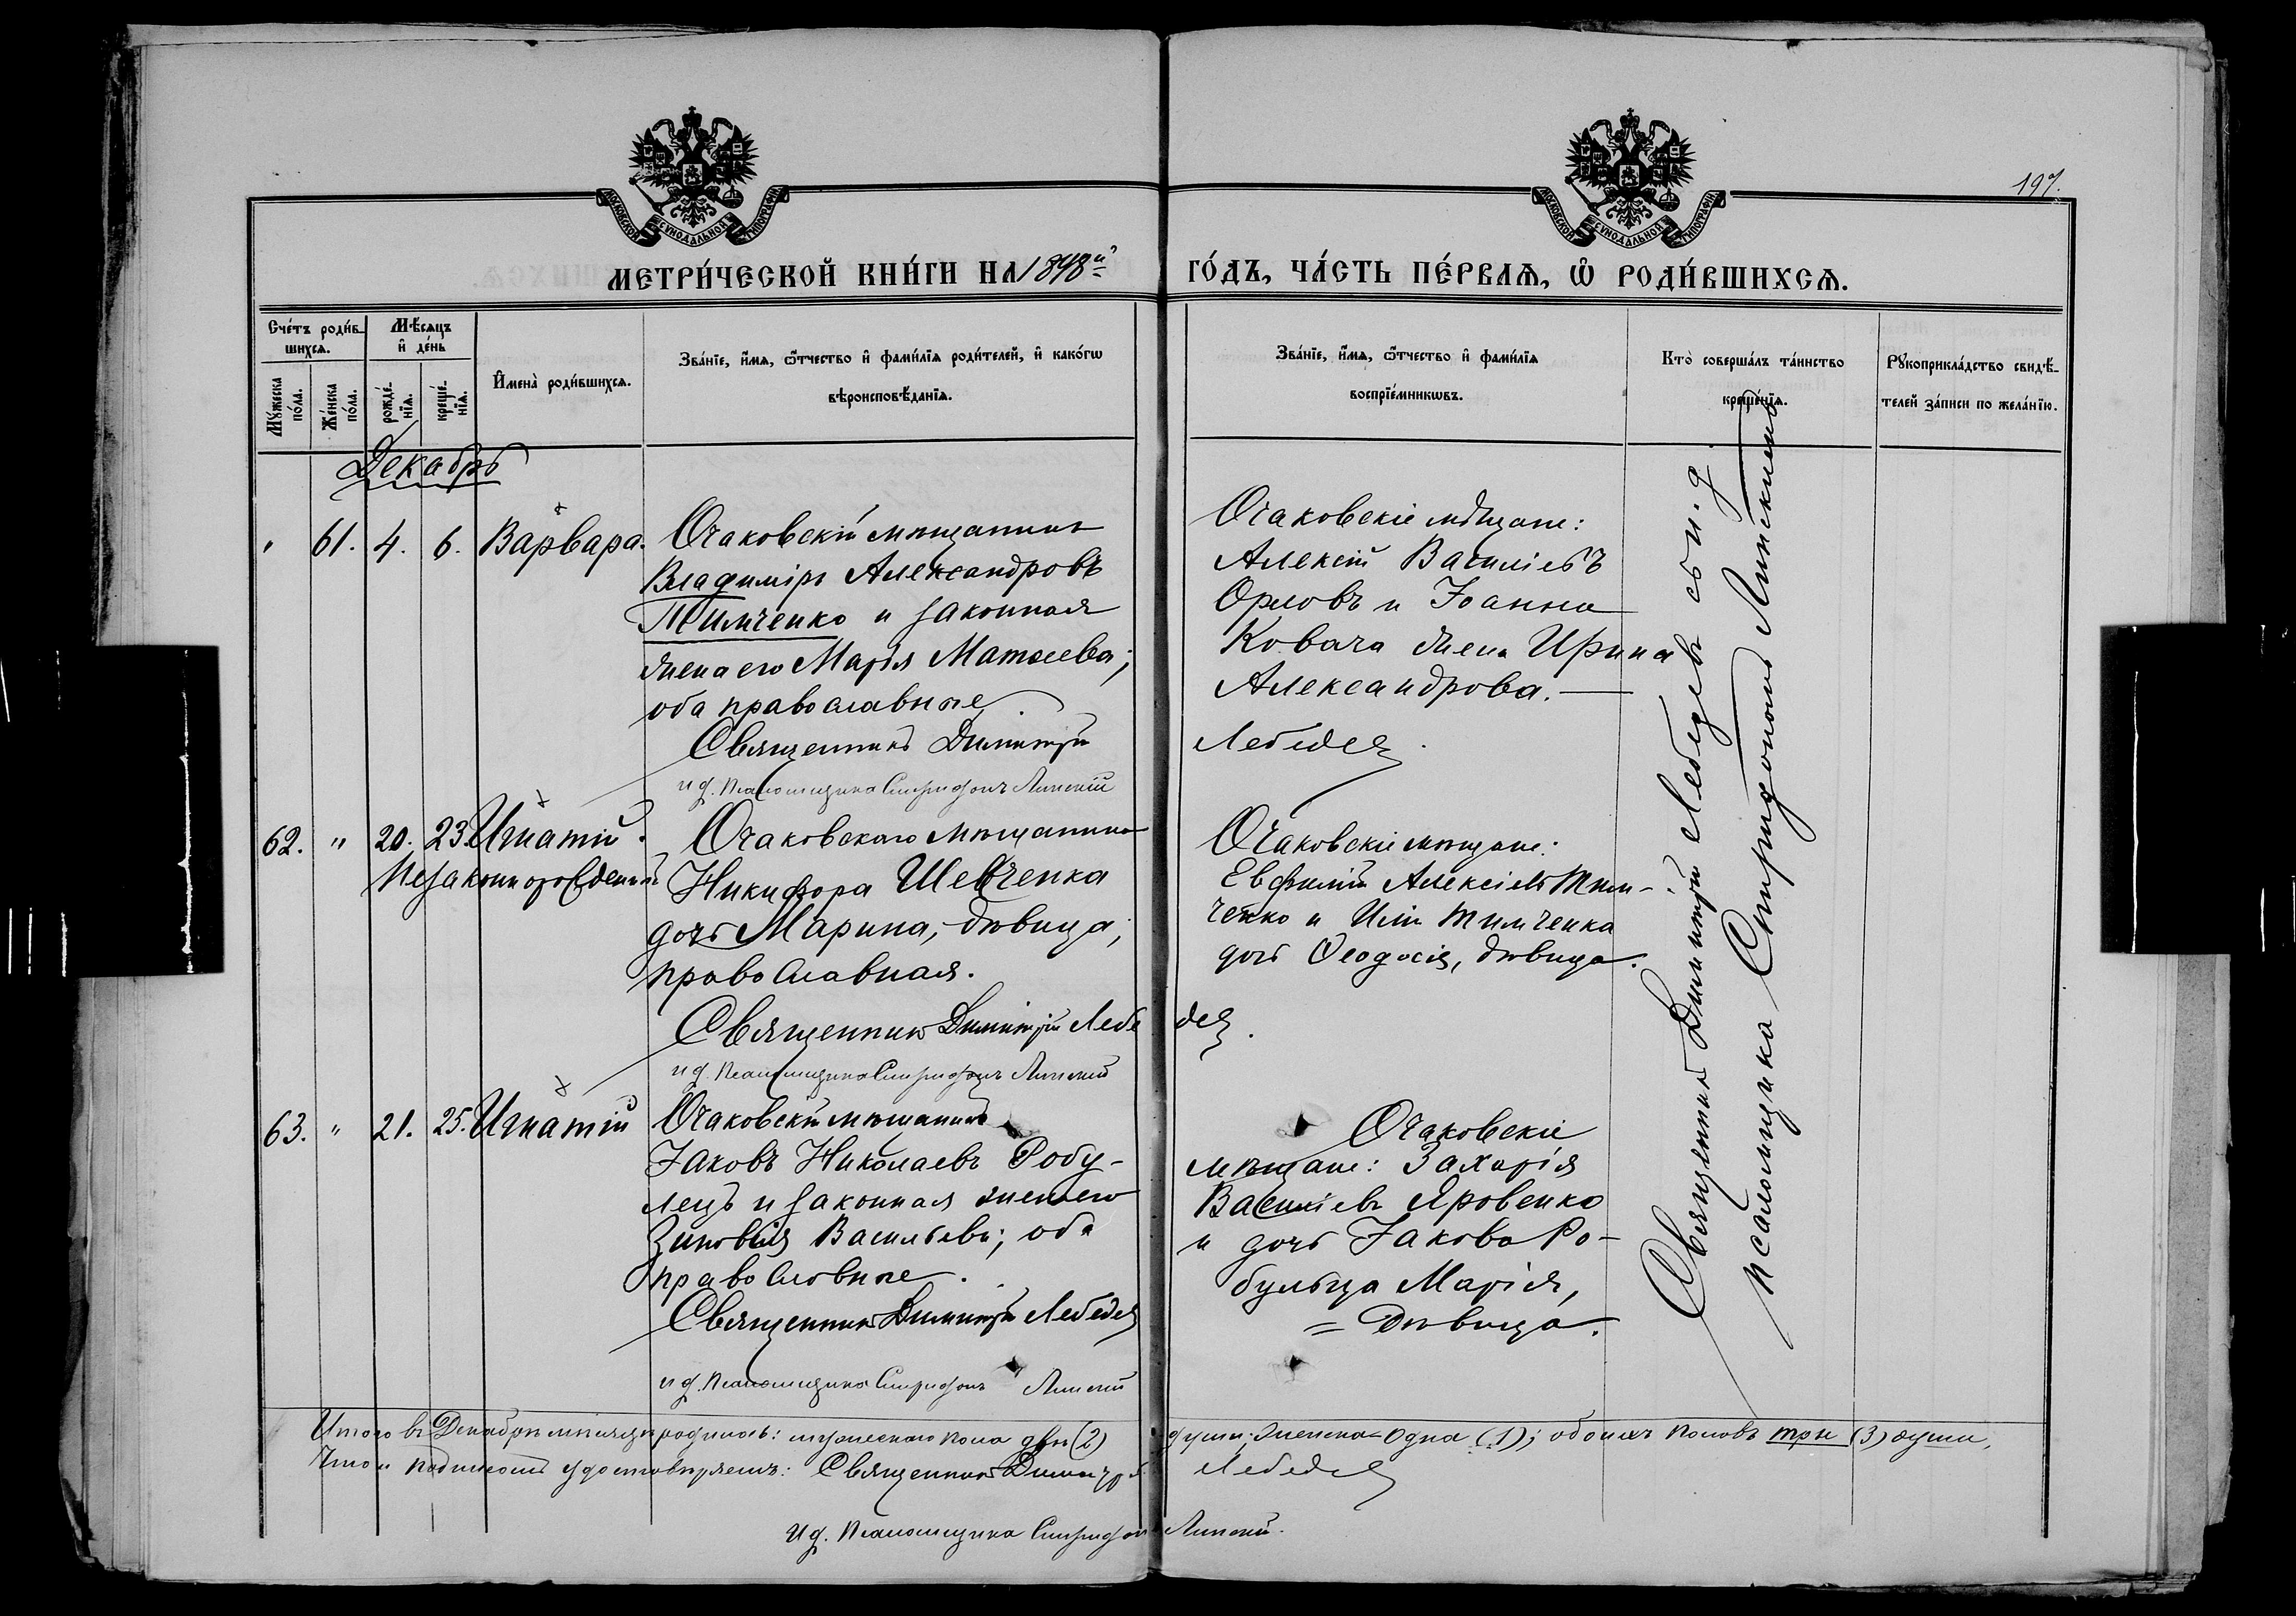 197.
МОСКОВСКОЙ СѴНОДАЛЬНОЙ ТИПОГРАФІИ
МОСКОВСКОЙ СѴНОДАЛЬНОЙ ТИПОГРАФІИ
МЕТРИ́ЧЕСКОЙ КНИ́ГИ НА 1898й ГО́ДЪ, ЧА́СТЬ ПЕ́РВАѦ, Ѡ҆ РОДИ́ВШИХСѦ.
Сче́тъ роди́в-
шихсѧ.
Мꙋ́жеска по́ла.
Же́нска по́ла.
Мѣ́сѧцъ
и҆ де́нь
рожде́-
нїѧ.
креще́-
нїѧ.
И҆мена̀ роди́вшихсѧ.
Зва́нїе, и҆́мѧ, ѻ҆́тчество и҆ фами́лїѧ роди́телей, и҆ како́гѡ
вѣроисповѣ́данїѧ.
Зва́нїе, и҆́мѧ, ѻ҆́тчество и҆ фами́лїѧ
воспрїе́мникѡвъ.
Кто̀ соверша́лъ та́инство
креще́нїѧ.
Рꙋкоприкла́дство свидѣ́-
телей за́писи по жела́нїю.
Декабрь
" 61. 4. 6. Варвара.
Очаковскій мѣщанинъ
Владиміръ Александровъ
Тимченко и законная
жена его Марія Матѳеева;
оба православные
Священникъ Димитрій Лебедев
и д. Псаломщика Спиридонъ Липскій
Очаковскіе мѣщане:
Алексій Василіевъ
Орловъ и Іоанна
Ковача жена Ирина
Александрова.
62. " 20. 23. Игнатій.
Незаконнорожденный
Очаковскаго мѣщанина
Никифора Шевченка
дочь Марина, дѣвица,
православная.
Священникъ Димитрій Лебедев.
и д. Псаломщика Спиридонъ Липскій
Очаковскіе мѣщане:
Евфимій Алексіевъ Тим-
ченко и Иліи Тимченка
дочь Ѳеодосія, дѣвица.
63. " 21. 25. Игнатій
Очаковскій мѣщанинъ
Іаковъ Николаевъ Робу-
лецъ и законная жена его
Зиновія Васильева; оба
православные.
Священникъ Димитрій Лебедев
и д. Псаломщика Спиридонъ Липскій
Очаковскіе
мѣщане: Захарія
Василіевъ Яровенко
и дочь Іакова Ро-
бульца Марія,
= дѣвица.
Священникъ Димитрій Лебедевъ съ и. д.
псаломщика Спиридономъ Липскимъ
Итого въ Декабрѣ мѣсяцѣ родилось: мужескаго пола двѣ (2) души; женска = одна (1); обоихъ половъ три (3) души,
Что и подписомъ удостовѣряемъ: Священникъ Димитрій Лебедев
И д. Псаломщика Спиридонъ Липскій.